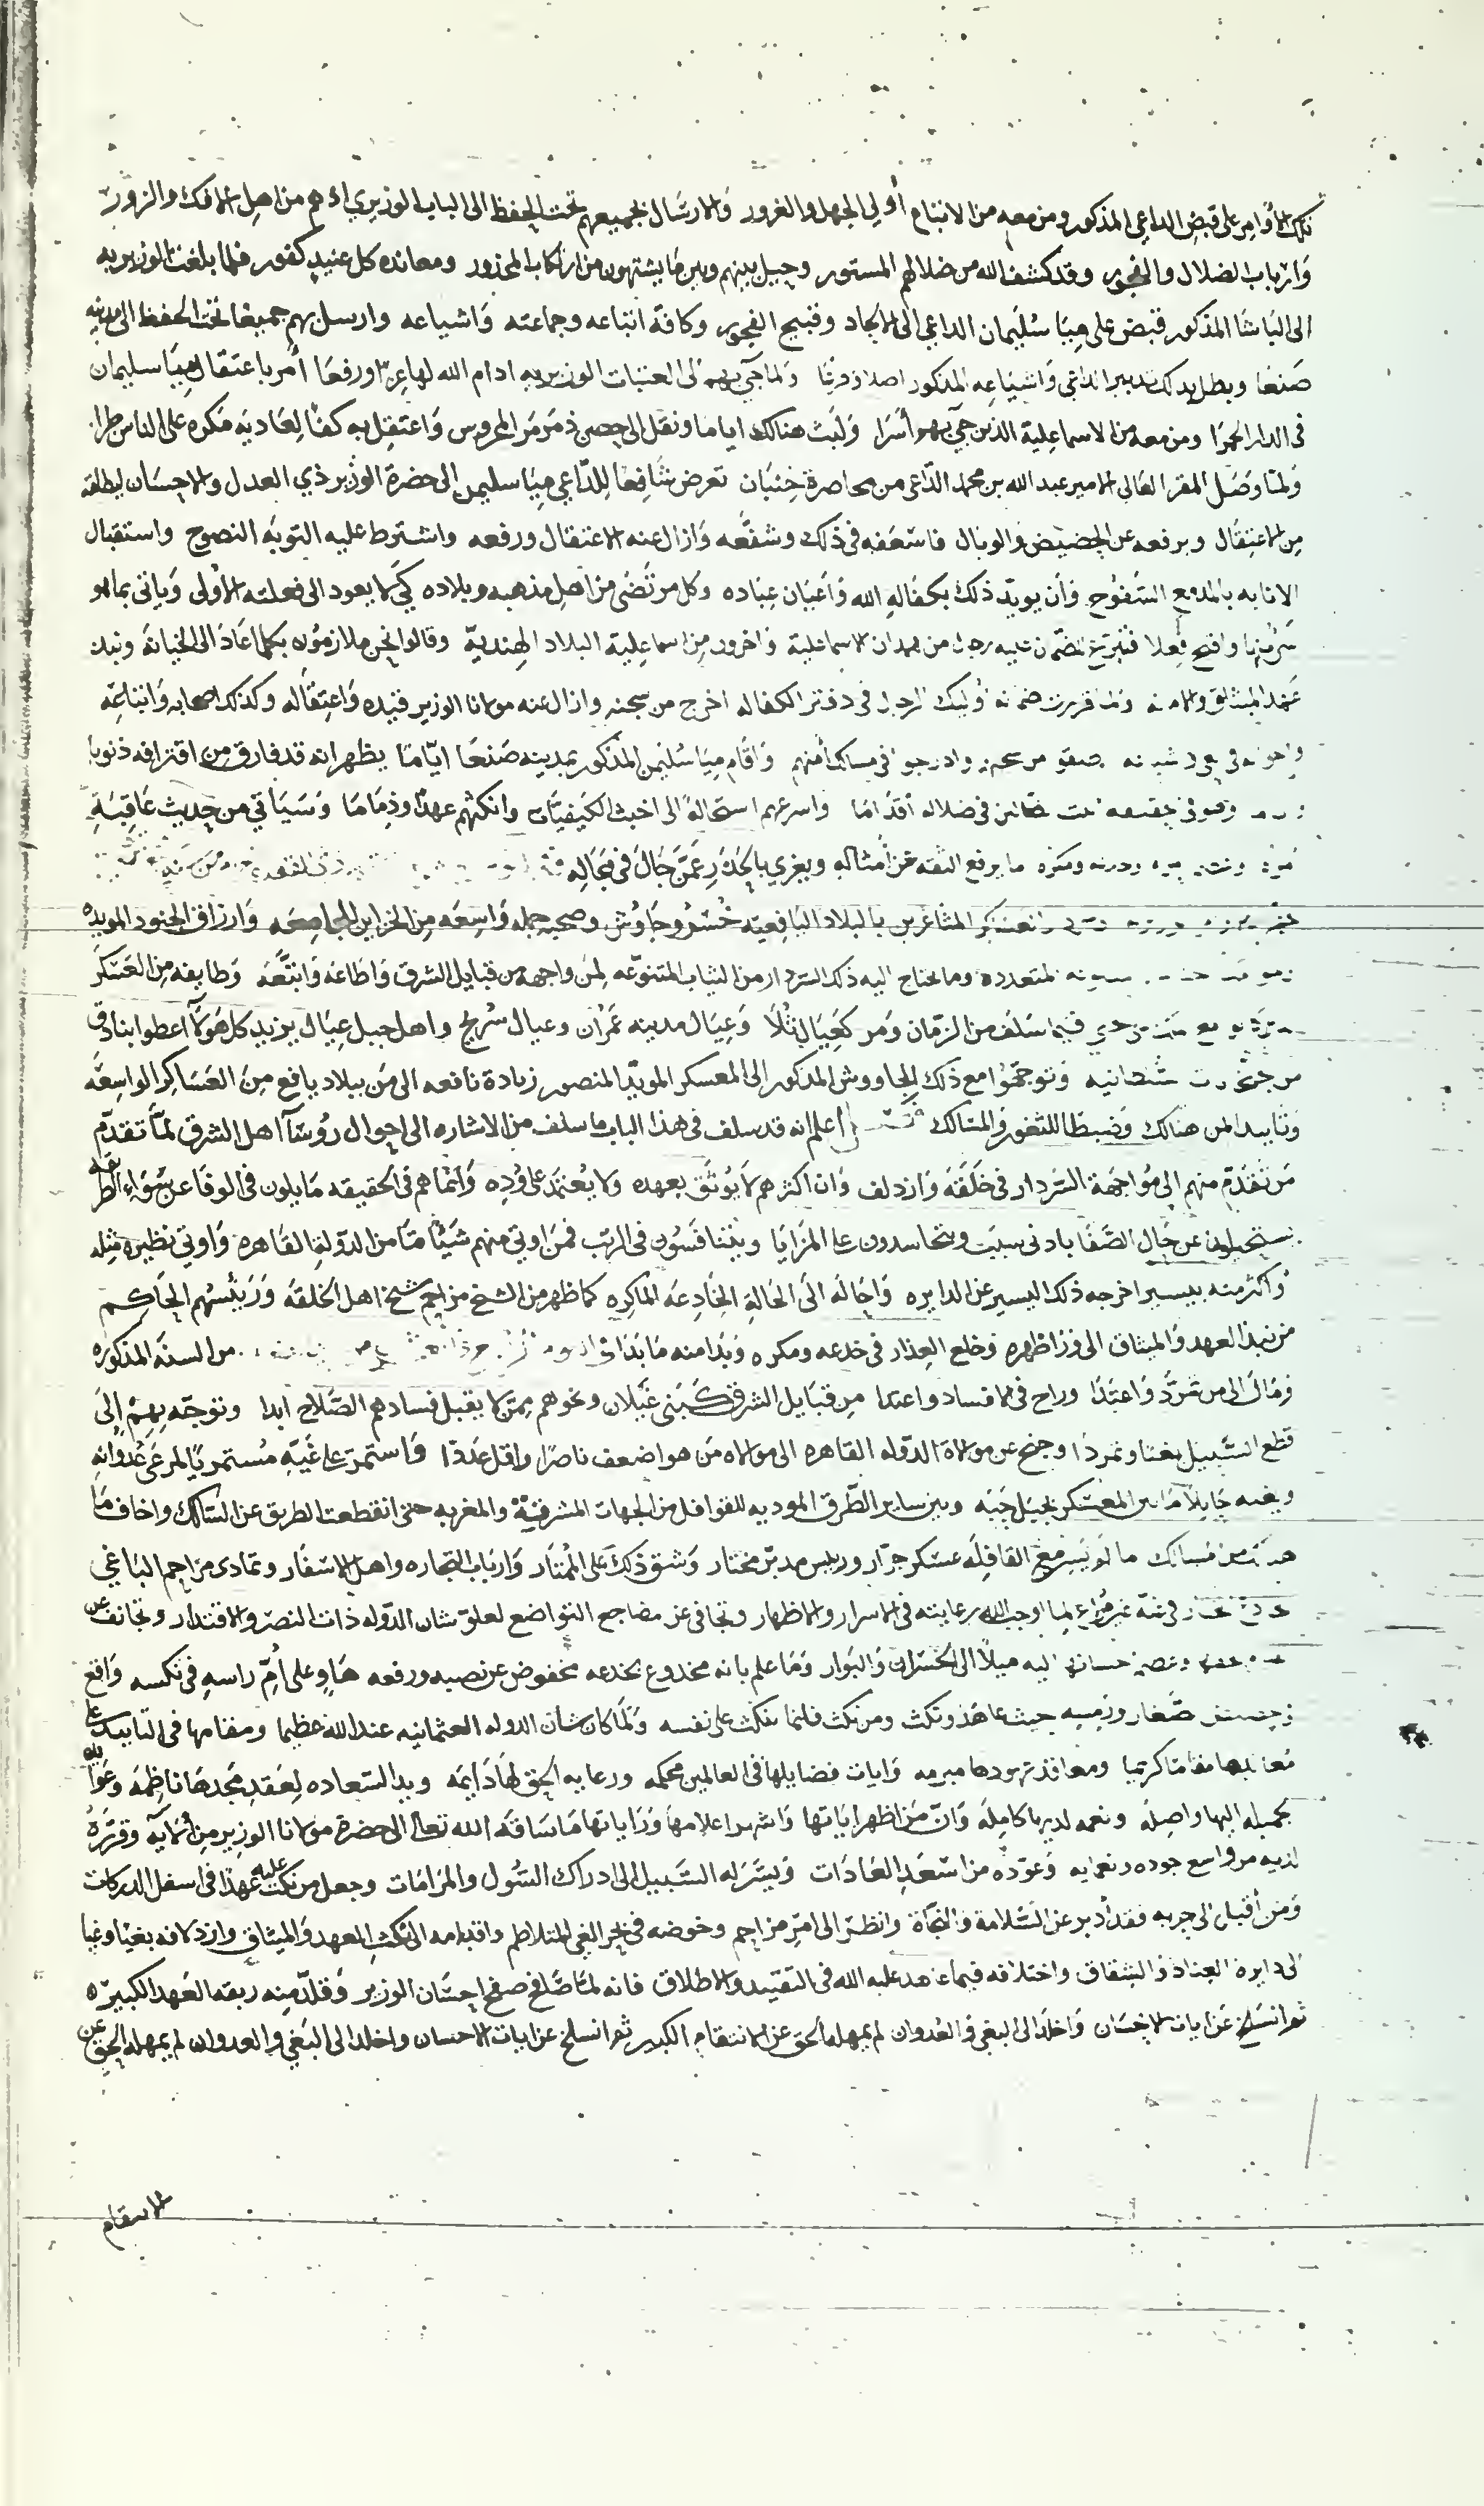 تلك الأوامر على قبض الداعي المذكور ومن معه من الاتباع أولي الجهل والغرور والارسال بجميعهم تحت الحفظ الى الباب الوزيري اذ هم من اهل الافك والزور
وارباب الضلال والفجور وقد كشف الله من ضلالهم المستور وحيل بينهم وبين ما يشتهون من ارتكاب المحذور ومعانده كل عنيد كفور فلما بلغت الوزيريه
الى الباشا المذكور قبض على ميا سليمان الداعي الى الالحاد وقبيح الفجور وكافة اتباعه وجماعته واشياعه وارسل بهم جميعا تحت الحفظ الى مدينه
صنعا وبطل بذلك تدبير الداعي واشياعه المذكور اصلا وفرعا ولما جي بهم الى العتبات الوزيريه ادام الله لها عزا ورفعا أمر باعتقال ميا سليمان
في الدار الحمرا ومن معه من الاسماعلية الذين جي بهم أسرا ولبث هنالك اياما ونقل الى حصن ذمرمر المحروس واعتقل به كفا لعاديه مكره على الناس طرا
ولما وصل المقر العالي الامير عبد الله بن محمد الداعي من محاصرة تعرض شافعا للداعي ميا سليمن الى حضرة الوزير ذي العدل والاحسان ليطلقه
من الاعتقال ويرفعه عن الحضيض والوبال فاسعفه في ذلك وشفعه وازال عنه الاعتقال ورفعه واشترط عليه التوبه النصوح واستقبال
الانابه بالمدمع السفوح وأن يويد ذلك بكفالة الله واعيان عباده وكل مرتضى من اهل مذهبه وبلاده كي لا يعود الى فعلته الأولى وياتي بما هو
شر منها واقبح فعلا عليه رجال من همدان الاسماعلية واخرون من اسماعلية البلاد الهندية وقالوا نحن ملازمون بكلما عاد الى الخيانة ونبذ
عهد الميثاق والامانه ولما قررت ضمانة أوليك الرجال في دفتر الكفاله اخرج من سجنه وازال عنه مولانا الوزير قيده واعتقاله وكذلك اصحابه واتباعه
وادرجوا في مسالك أمنهم واقام ميا سليمن المذكور بمدينه صنعا اياما يظهر انه قد فارق من اقترافه ذنوبا
وهو في في ضلاله أقداما واسرعهم استحالة الى اخبث الكيفيات وانكثهم عهدا وذماما وسياتي من حديث عاقبة
ومكره ما يرفع الثقه عن أمثاله ويغري بالحذر عمن حال في مجاله
المثاغرين بالبلاد اليافعية خسرو جاوش وصحبه جمله واسعه من الخزاين الجامعه وارزاق الجنود المويده
المتعدده وما يحتاج اليه ذلك السردار من الثياب المتنوعه لمن واجهه من قبايل الشرق واطاعه واتبعه وطايفه من العسكر
فيما سلف من الزمان ومر كعيال ثلا وعيال مدينه عمران وعيال سريح واهل جبل عيال يزيد كل هولآ اعطوا بنادق
وتوجهوا مع ذلك الجاووش المذكور الى المعسكر المويد المنصور زيادة نافعه الى من ببلاد يافع من العساكر الواسعه
وتاييدا لمن هنالك وضبطا للثغور والمسالك اعلم انه قد سلف في هذا الباب ما سلف من الاشاره الى احوال روسآ اهل الشرق لما تقدم
من تقدم منهم الى مواجهة السردار في خلقه وازدلف وان اكثرهم لا يوثق بعهده ولا يعتمد على وده وانما هم في الحقيقه مايلون في الوفا عن سواء الطريقه
يستحيلون عن حال الصفا بادنى سبب ويتحاسدون على المزايا ويتنافسون في الرتب فمن اوتي منهم شيئا ما من الدولة القاهره واوتي نظيره مثله
أو اكثر منه بيسير اخرجه ذلك اليسير عن الدايره واحاله الى الحالة الخادعة الماكره كما ظهر من الشيخ مزاحم شيخ اهل الخلقه ورئيسهم الحاكم
من نبذ العهد والميثاق الى ورا ظهره وخلع العذار في خدعه ومكره وبدا منه ما بدا من السنه المذكوره
ومال الى من تمرد واعتدا وراح في فساد واعتدا من قبايل الشرق كبني غيلان ونحوهم ممن لا يقبل فسادهم الصلاح ابدا وتوجه بهم إلى
قطع السبيل بغيا وتمردا وجنح عن موالاة الدوله القاهره الى موالاه من هو اضعف ناصرا واقل عددا واستمر على غيه مستمريا لمرعى عدوانه
وبغيه حايلا ما بين المعسكر بجبل حبه وبين ساير الطرق الموديه للقوافل من الجهات المشرقية والمغربه حتى انقطعت الطريق عن السالك واخاف ما
هنالك من مسالك ما لم يسر مع القافله عسكر جرار ورييس مدبر مختار وشق ذلك على الممتار وارباب التجاره واهل الاسفار وتمادى مزاحم الباغي
في غيه غير مراع لما اوجب الله رعايته في الاسرار والاظهار وتجافى عن مضاجع التواضع لعلو شان الدوله ذات النصر والاقتدار وتجانف عن
احسانها اليه ميلا الى الخسران والبوار وما علم بانه مخدوع بخدعه مخفوض عن نصبه ورفعه هاو على أم راسه في نكسه واقع
حيث عاهد ونكث ومن نكث فانما ينكث على نفسه ولما كان شان الدوله العثمانيه عند الله عظيما ومقامها في التاييد على
معانديها مقاما كريما ومعاقد عهودها مبرمه وايات فضايلها في العالمين محكمه ورعايه الحق لها دايمه ويد السعاده لعقد مجدها ناظمه وعوايد
بجميله اليها واصله ونعمه لديها كامله وان من اظهر اياتها واشهر اعلامها وراياتها ما ساقه الله تعالى الى حضرة مولانا الوزير من آلايه وقرره
لديه من واسع جوده ونعمايه وعوده من اسعد العادات ويسر له السبيل الى ادراك السول والمرامات وجعل من نكث عليه عهدا في اسفل الدركات
ومن أقبل الى حربه فقد أدبر عن السلامة والنجاة وانظر الى امر مزاحم وخوضه في بحر الغي المتلاطم واقدامه الى نكث العهد والميثاق وازدلافه بغيا وغيا
الى دايرة العناد والشقاق واختلافه فيما عاهد عليه الله في التقييد والاطلاق فانه لما صفح احسان الوزير وقلد منه ربقه العهد الكبيره
ثم انسلخ عن ايات الاحسان واخلد الى البغي والعدوان لم يمهله الحق عن الانتقام الكبير ثم انسلخ عن ايات الاحسان واخلد الى البغي والعدوان لم يمهله الحق عن
الانتقام